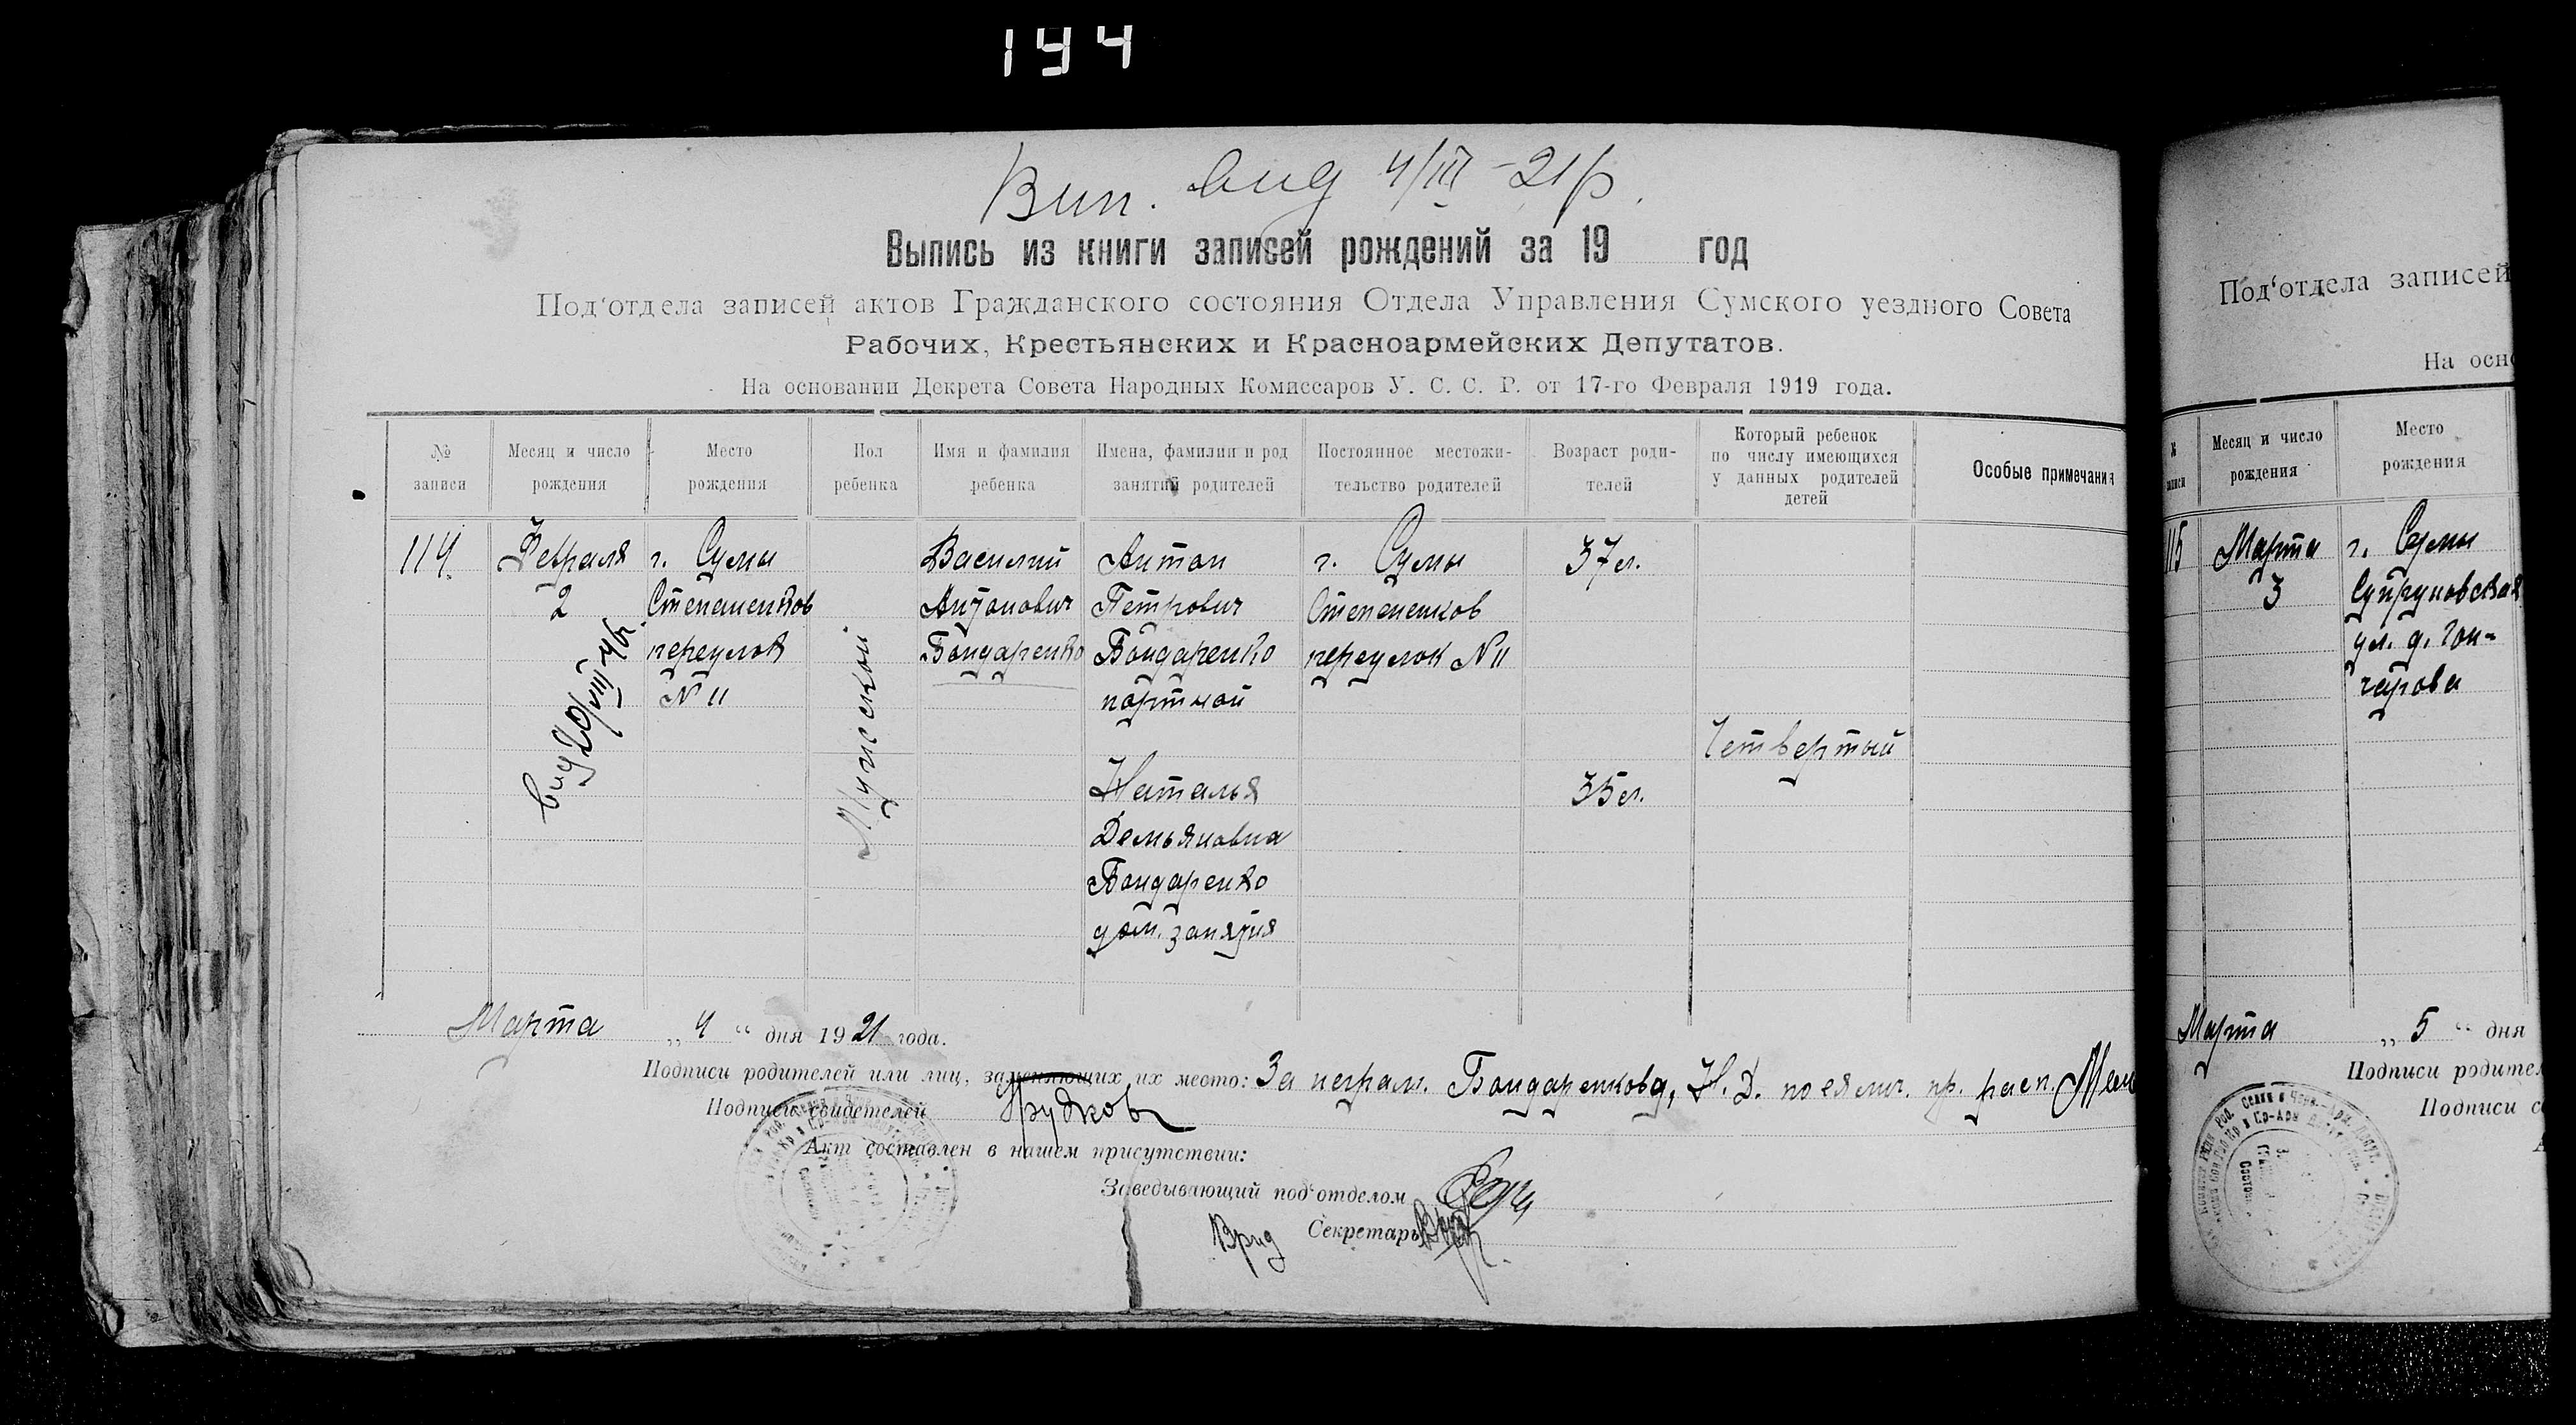 144
Вип. вид 4/III-21р.
Выпись из книги записей рождений за 19 год
Под‘отдела записей актов Гражданского состояния Отдела Управления Сумского уездного Совета
Рабочих, Крестьянских и Красноармейских Депутатов.
На основании Декрета Совета Народных Комиссаров У. С. С. Р. от 17-го Февраля 1919 года.
№ записи
Месяц и число рождения
Место рождения
Пол ребенка
Имя и фамилия ребенка
Имена, фамилии и род занятий родителей
Постоянное местожи-
тельство родителей
Возраст роди-
телей
Который ребенок
по числу имеющихся
у данных родителей
детей
Особые примечания
114.
Февраля
2
г. Сумы
Степаненков
переулок
№ 11
Мужеский
Василий
Антонович
Бондаренко
Антон
Петрович
Бондаренко
портной
Наталья
Демьяновна
Бондаренко
дом. занятия
г. Сумы
Степаненков
переулок № 11
37 л.
35 л.
Четвертый
Марта „ 4 “ дня 1921 года.
Подписи родителей или лиц, заменяющих их место: За неграм. Бондаренкову, Н. Д. по ея лич. пр. расп.
Подписи свидетелей
Акт составлен в нашем присутствии:
Заведывающий под‘отделом
Врид Секретарь
Под‘отдела записей
На осно
№ записи
Месяц и число
рождения
Место
рождения
115
Марта
3
г. Сумы
Супруновская
ул. д. Гон-
чарова
Марта „ 5 “ дня
Подписи родител
Подписи с